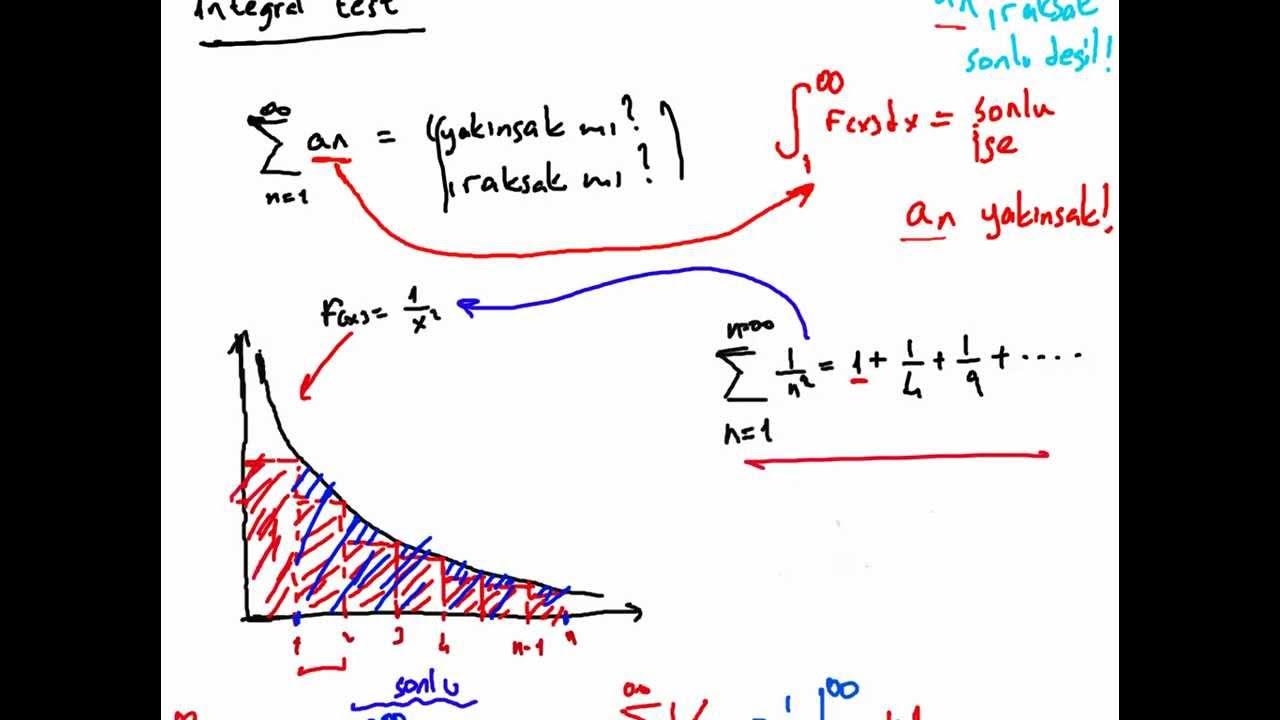 integral test
an ıraksak
sonlu değil!
∞
∑ an = (yakınsak mı?
n=1 ıraksak mı?)
∫₁^∞ F(x)dx = sonlu
ise
an yakınsak!
F(x) = 1/x²
n=∞
∑ 1/n² = 1 + 1/4 + 1/9 + ....
n=1
1 2 3 4 n-1 n
sonlu
∞
∞